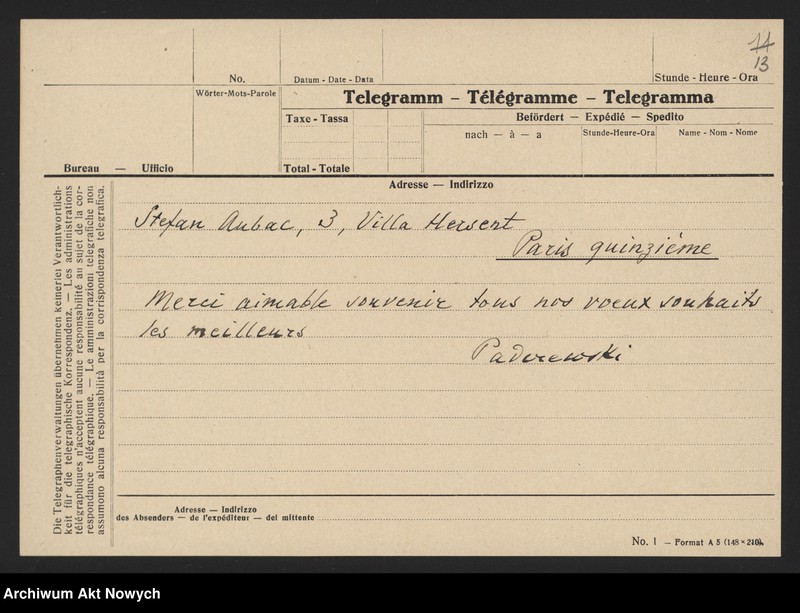 14
13
No.
Datum - Date - Data
Stunde - Heure - Ora
Wörter-Mots-Parole
Telegramm — Télégramme — Telegramma
Taxe - Tassa
Befördert — Expédié — Spedito
nach — à — a
Stunde-Heure-Ora
Name - Nom - Nome
Bureau — Ufficio
Total - Totale
Adresse — Indirizzo
Die Telegraphenverwaltungen übernehmen keinerlei Verantwortlich-
keit für die telegraphische Korrespondenz. — Les administrations
télégraphiques n'acceptent aucune responsabilité au sujet de la cor-
respondance télégraphique. — Le amministrazioni telegrafiche non
assumono alcuna responsabilità per la corrispondenza telegrafica.
Stefan Aubac, 3, Villa Hersent
Paris quinzième
Merci aimable souvenir tous nos voeux souhaits
les meilleurs
Paderewski
Adresse — Indirizzo
des Absenders — de l'expéditeur — del mittente
No. 1 — Format A 5 (148 × 210).
Archiwum Akt Nowych